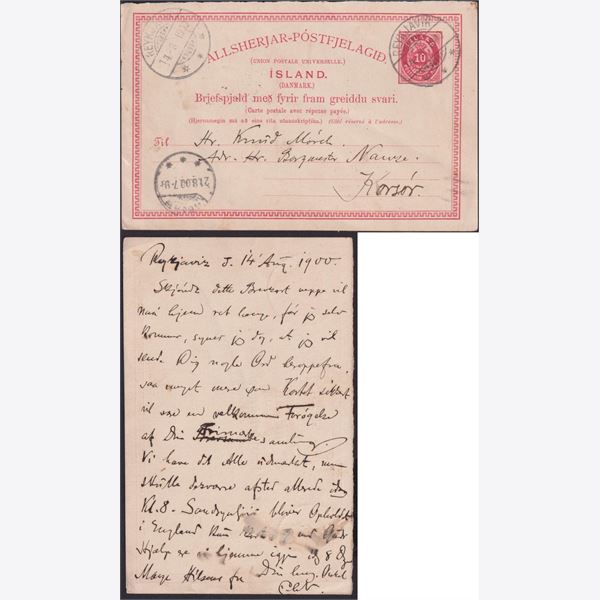 REYKJAVIK
14 8
REYKJAVIK
ALLSHERJAR-PÓSTFJELAGIÐ.
(UNION POSTALE UNIVERSELLE.)
ÍSLAND.
(DANMARK.)
10
Brjefspjald með fyrir fram greiddu svari.
(Carte postale avec réponse payée.)
(Hjernamegin má að eins rita utanáskriptina.) (Côté réservé à l'adresse.)
Til Hr. Knud Mörch
Adr. Hr. Borgmester
Korsör.
21.8.00.7-
Reykjavik d. 14 Aug. 1900.
Skjöndt dette Brevkort neppe vil
naa hjem ret længe, før jeg selv
kommer, synes jeg dog, at jeg vil
sende Dig nogle Ord heroppefra,
saa meget mere som Kortet sikkert
vil være en velkommen Forøgelse
af Din Frimærkesamling.
Vi have det Alle udmærket, men
skulle desværre afsted allerede idag
Kl. 8. Sandsynligvis bliver Opholdet
i England kun kort og med Guds
Hjælp ere vi hjemme igjen
Mange Hilsner fra Din